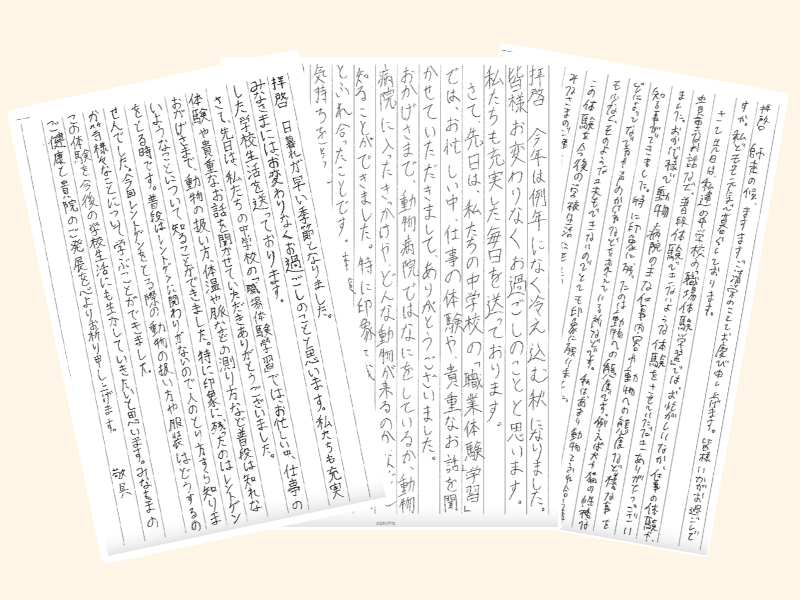 拝啓　日暮れが早い季節となりました。
みなさまにはお変わりなくお過ごしのことと思います。私たちも充実
した学校生活を送っております。
さて、先日は、私たちの中学校の「職場体験学習」ではお忙しい中、仕事の
体験や貴重なお話を聞かせていただきありがとうございました。
おかげさまで、動物の扱い方、体温や脈などの測り方など普段は知れな
いようなことについて知ることができました。特に印象に残ったのはレントゲン
をとる時です。普段はレントゲンに関わりがないので人のとり方すら知りま
せんでした。今回レントゲンをとる際の動物の扱い方や服装はどうするの
かなど様々なことについて学ぶことができました。
この体験を今後の学校生活にも生かしていきたいと思います。みなさまの
ご健康と貴院のご発展を心よりお祈り申し上げます。
敬具
拝啓　今年は例年になく冷え込む秋になりました。
皆様お変わりなくお過ごしのことと思います。
私たちも充実した毎日を送っております。
さて、先日は、私たちの中学校の「職業体験学習」
では、お忙しい中、仕事の体験や、貴重なお話を聞
かせていただきまして、ありがとうございました。
おかげさまで、動物病院ではなにをしているか、動物
病院に入ったきっかけや、どんな動物が来るのか
知ることができました。特に印象
とふれ合ったことです。
気持ちを
拝啓　師走の候、ますますご清栄のこととお慶び申し上げます。皆様いかがお過ごしで
すか。私どももでたく暮らしております。
さて先日は、私達の中学校の「職場体験学習」ではお忙しいなか、仕事の体験や、
貴重なお話など、普段体験できないような体験をさせていただきありがとうござい
ました。おかげ様で動物病院の主な仕事内容や動物への態度など様な事を
知る事ができました。特に印象に残ったのは動物への態度です。例えば犬や猫の性格は
この体験を今後の学校生活にも
みなさまのご